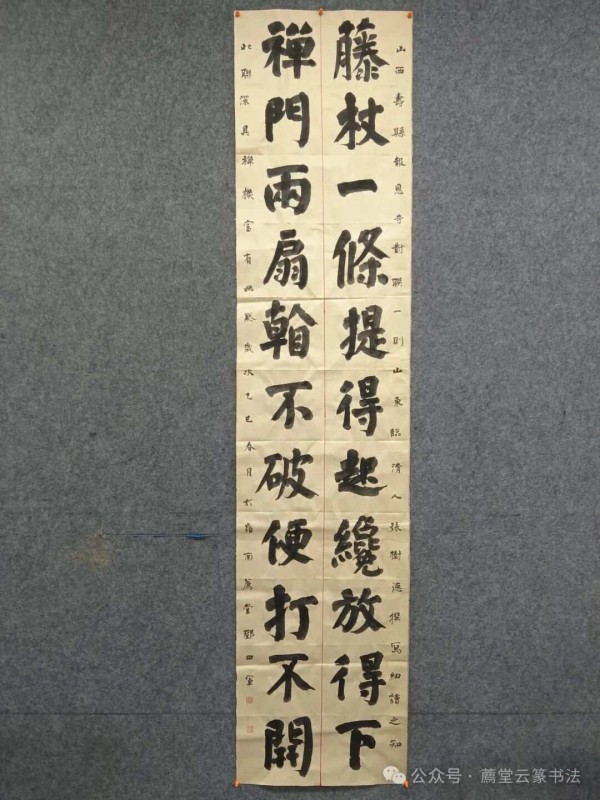 山西壽縣報恩寺對聯一則山東臨清人張樹德撰寫細讀之知
藤杖一條提得起纔放得下
禪門兩扇不破便打不開
此聯深具禪機富有幽默歲次乙巳春月於嶺南薦堂鄧田軍
公众号·薦堂云篆书法